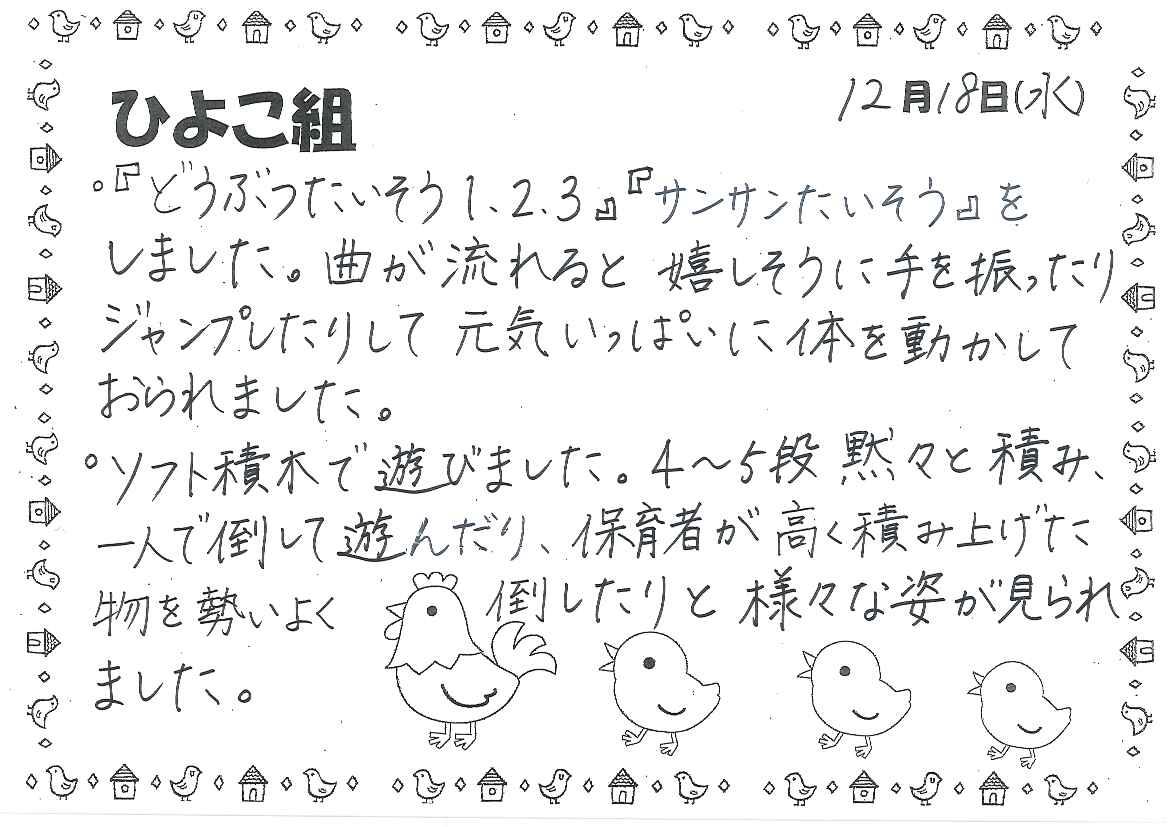 ひよこ組
12月18日(水)
。『どうぶつたいそう1、2、3』『サンサンたいそう』を
しました。曲が流れると 嬉しそうに手を振ったり
ジャンプしたりして 元気いっぱいに体を動かして
おられました。
。ソフト積木で遊びました。4～5段 黙々と積み、
一人で倒して遊んだり、保育者が高く積み上げた
物を勢いよく 倒したりと様々な姿が見られ
ました。